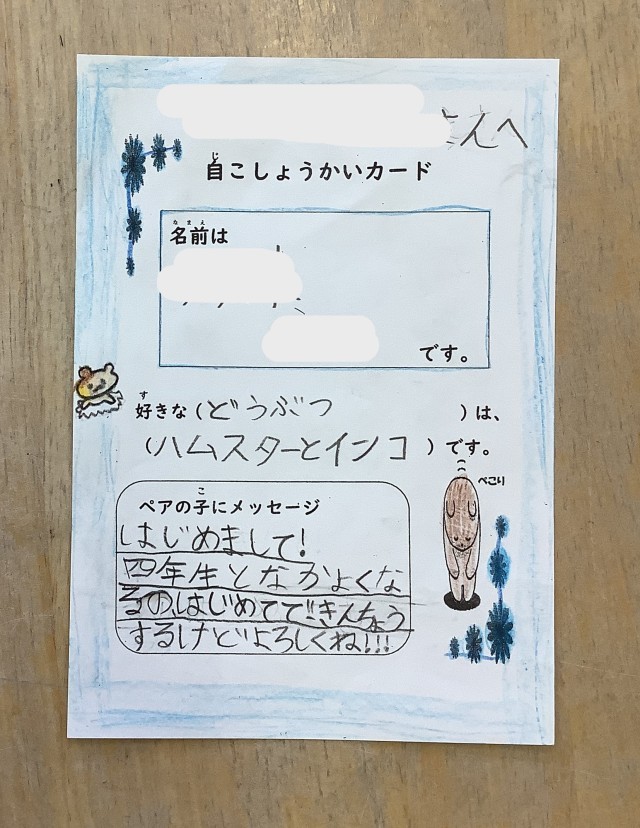 さんへ
自こしょうかいカード
じ
名前は
なまえ
です。
好きな(どうぶつ)は、
す
(ハムスターとインコ)です。
ぺこり
ペアの子にメッセージ
こ
はじめまして!
四年生となかよくな
るの、はじめてで、きんちょう
するけどよろしくね!!!